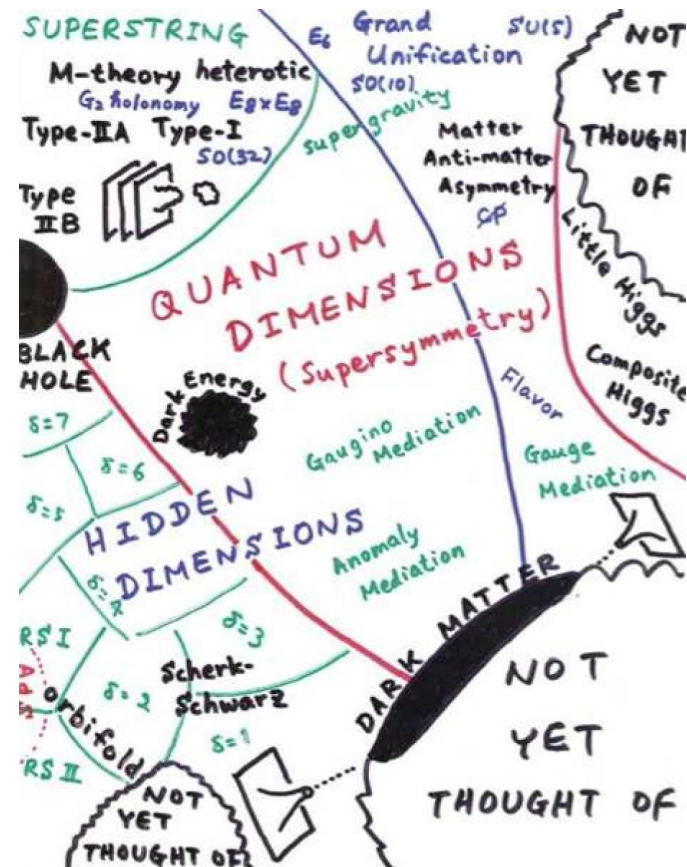 SUPERSTRING
M-theory heterotic
G₂ holonomy E₈xE₈
Type-IIA Type-I
SO(32)
Type
IIB
E₆ Grand
Unification
SU(5)
SO(10)
supergravity
Matter
Anti-matter
Asymmetry
CP
NOT
YET
THOUGHT
OF
Little Higgs
Composite
Higgs
QUANTUM
DIMENSIONS
(Supersymmetry)
BLACK
HOLE
Dark Energy
Flavor
Gaugino
Mediation
Gauge
Mediation
Anomaly
Mediation
δ=7
δ=6
δ=5
HIDDEN
DIMENSIONS
δ=3
RS I
AdS
orbifold
δ=2
Scherk-
Schwarz
δ=1
RS II
DARK MATTER
NOT
YET
THOUGHT OF
NOT
YET
THOUGHT OF